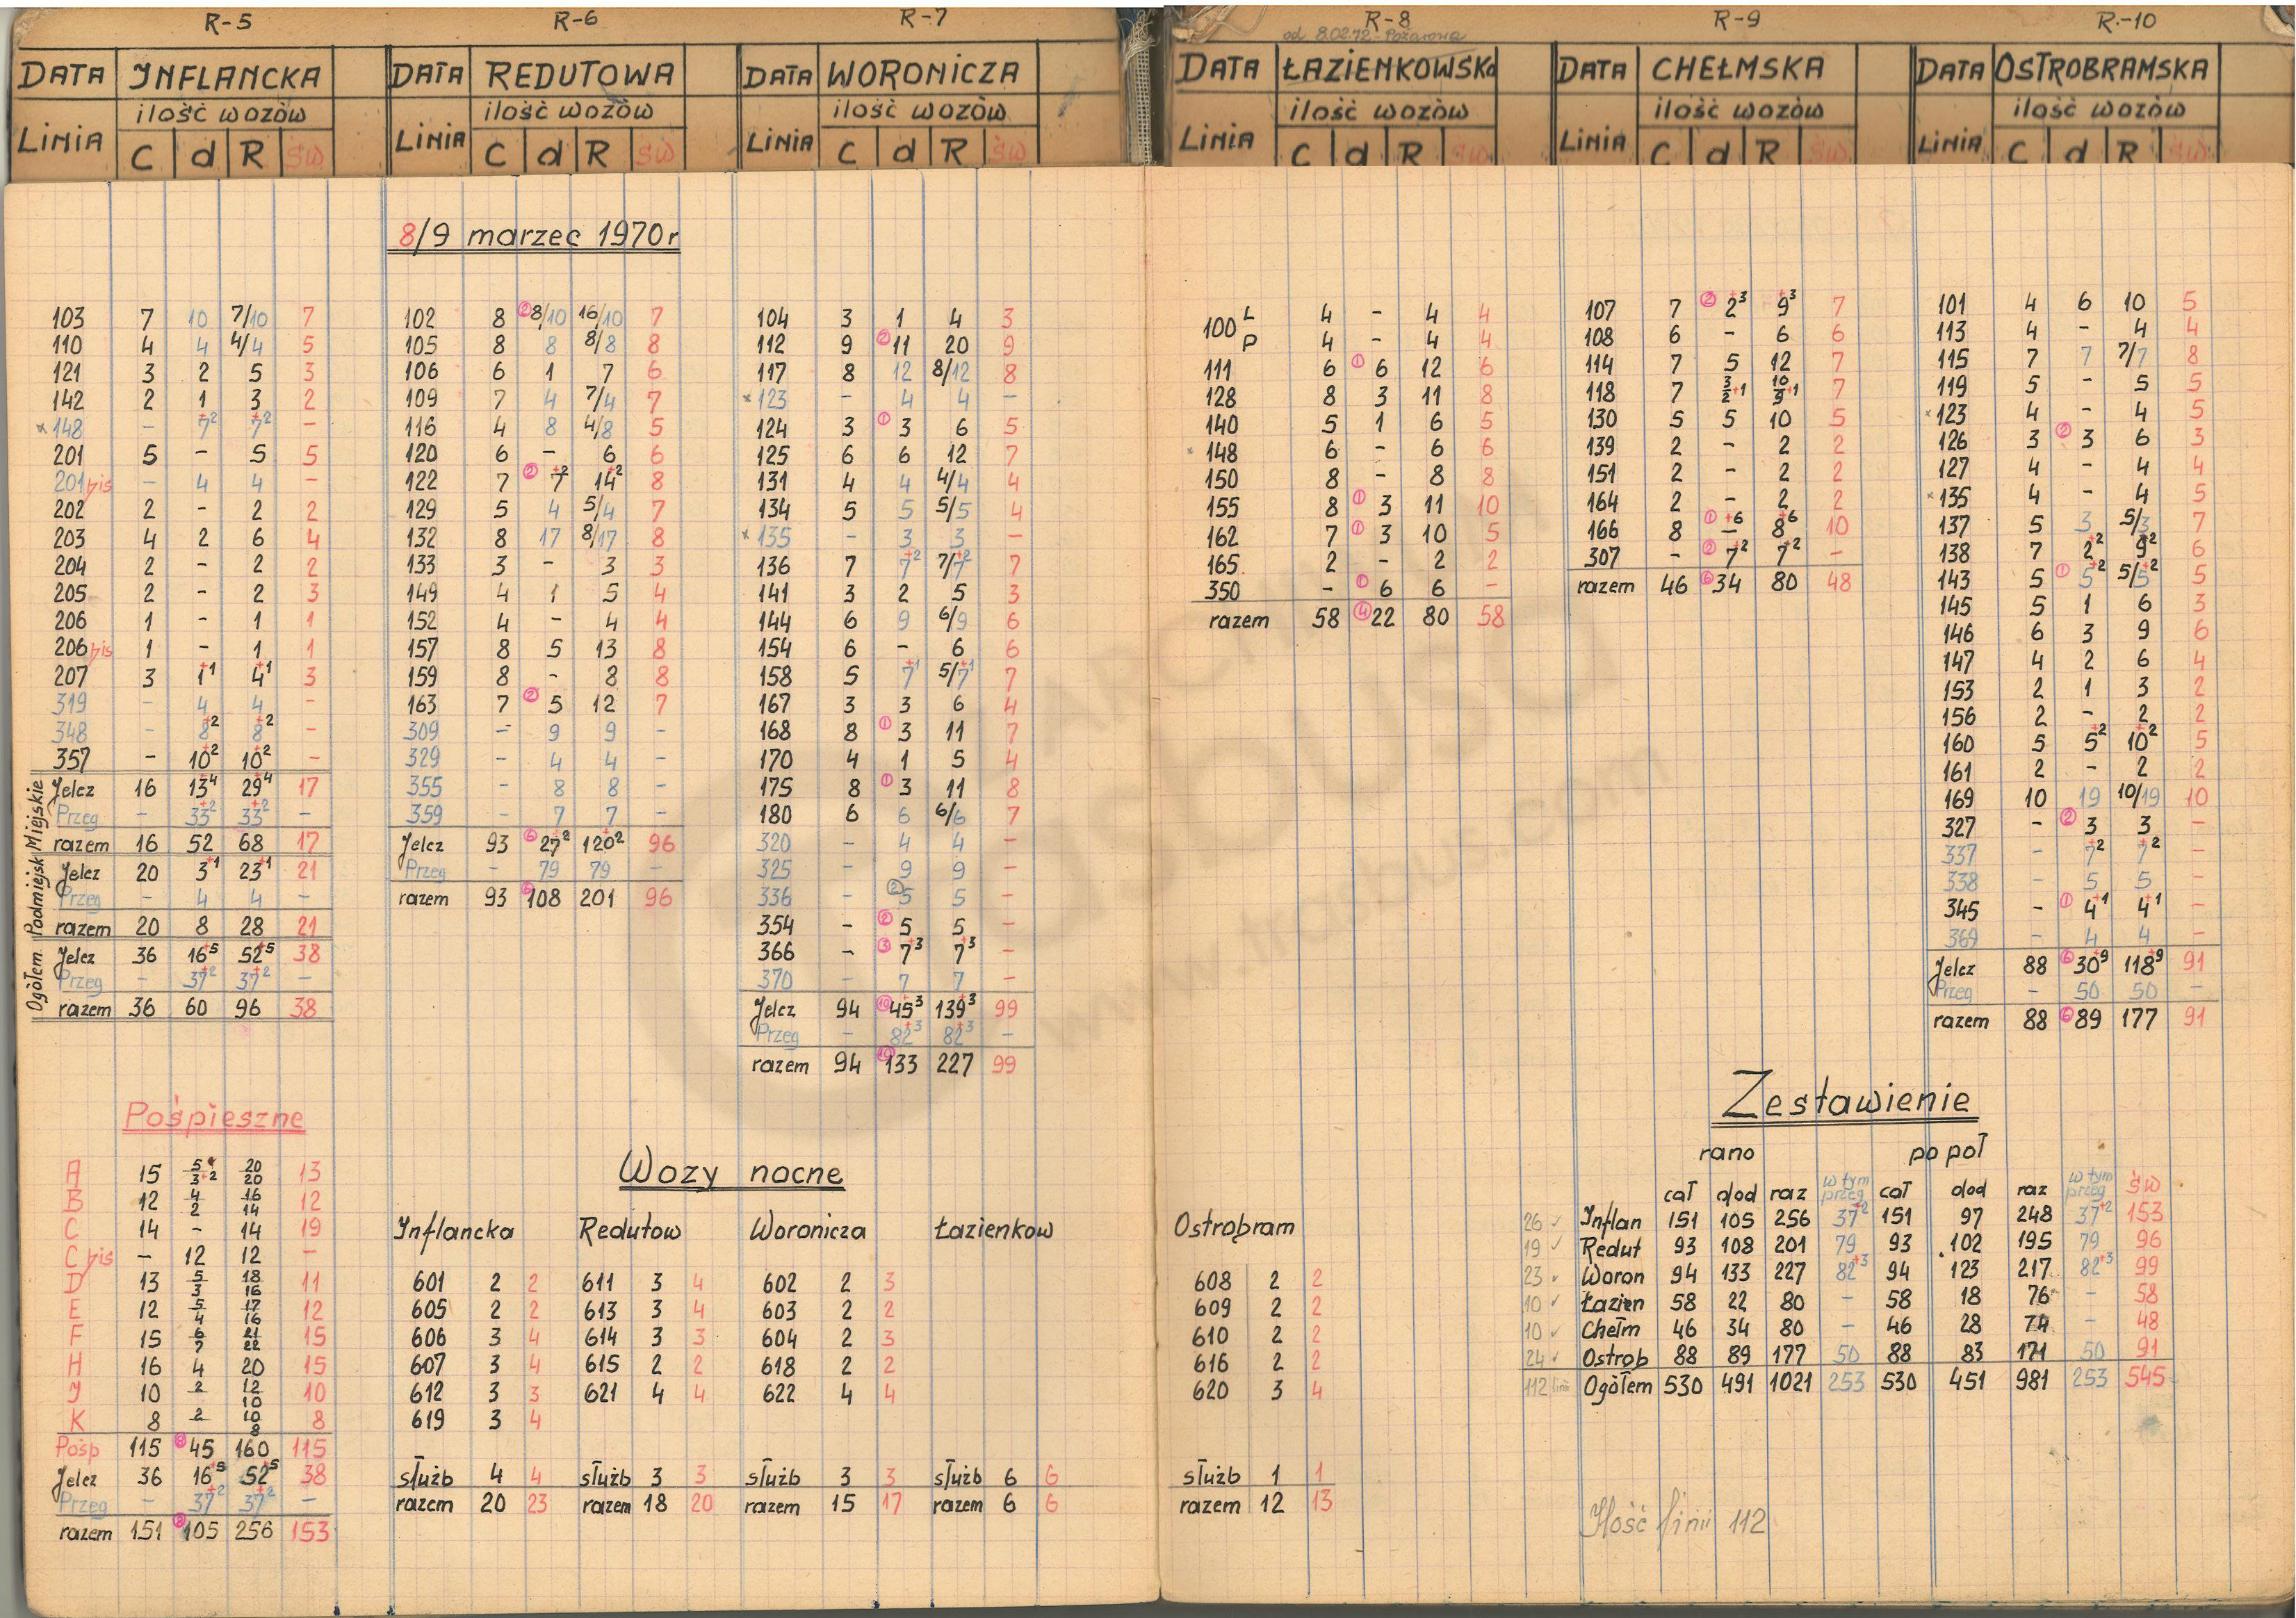 R-5
DATA INFLANCKA
ilość wozów
LINIA C d R św
103 7 10 7/10 7
110 4 4 4/4 5
121 3 2 5 3
142 2 1 3 2
x 148 - 7+2 7+2 -
201 5 - 5 5
201 bis - 4 4 -
202 2 - 2 2
203 4 2 6 4
204 2 - 2 2
205 2 - 2 3
206 1 - 1 1
206 bis 1 - 1 1
207 3 1+1 4+1 3
319 - 4 4 -
348 - 8+2 8+2 -
357 - 10+2 10+2 -
Miejskie
Jelcz 16 13+4 29+4 17
Przeg - 33+2 33+2 -
razem 16 52 68 17
Podmiejsk
Jelcz 20 3+1 23+1 21
Przeg - 4 4 -
razem 20 8 28 21
Ogółem
Jelcz 36 16+5 52+5 38
Przeg - 37+2 37+2 -
razem 36 60 96 38
Pośpieszne
A 15 5/3+2 20/20 13
B 12 4/2 16/14 12
C 14 - 14 19
C bis - 12 12 -
D 13 5/3 18/16 11
E 12 5/4 17/16 12
F 15 6/7 21/22 15
H 16 4 20 15
J 10 2 12/10 10
K 8 2 10/8 8
Pośp 115 45 160 115
Jelcz 36 16+5 52+5 38
Przeg - 37+2 37+2 -
razem 151 105 256 153
R-6
DATA REDUTOWA
ilość wozów
LINIA C d R św
8/9 marzec 1970r
102 8 ② 8/10 16/10 7
105 8 8 8/8 8
106 6 1 7 6
109 7 4 7/4 7
116 4 8 4/8 5
120 6 - 6 6
122 7 ② 7+2 14+2 8
129 5 4 5/4 7
132 8 17 8/17 8
133 3 - 3 3
149 4 1 5 4
152 4 - 4 4
157 8 5 13 8
159 8 - 8 8
163 7 ② 5 12 7
309 - 9 9 -
329 - 4 4 -
355 - 8 8 -
359 - 7 7 -
Jelcz 93 ⑥ 27+2 120+2 96
Przeg - 79 79 -
razem 93 ⑥ 108 201 96
R-7
DATA WORONICZA
ilość wozów
LINIA C d R św
104 3 1 4 3
112 9 ② 11 20 9
117 8 12 8/12 8
x 123 - 4 4 -
124 3 ① 3 6 5
125 6 6 12 7
131 4 4 4/4 4
134 5 5 5/5 4
x 135 - 3 3 -
136 7 7+2 7/7+2 7
141 3 2 5 3
144 6 9 6/9 6
154 6 - 6 6
158 5 7+1 5/7+1 7
167 3 3 6 4
168 8 ① 3 11 7
170 4 1 5 4
175 8 ① 3 11 8
180 6 6 6/6 7
320 - 4 4 -
325 - 9 9 -
336 - ② 5 5 -
354 - ② 5 5 -
366 - ③ 7+3 7+3 -
370 - 7 7 -
Jelcz 94 ⑩ 45+3 139+3 99
Przeg - 82+3 82+3 -
razem 94 ⑩ 133 227 99
Wozy nocne
Inflancka Redutow Woronicza Łazienkow Ostrobram
601 2 2 611 3 4 602 2 3 608 2 2
605 2 2 613 3 4 603 2 2 609 2 2
606 3 4 614 3 3 604 2 3 610 2 2
607 3 4 615 2 2 618 2 2 616 2 2
612 3 3 621 4 4 622 4 4 620 3 4
619 3 4
służb 4 4 służb 3 3 służb 3 3 służb 6 6 służb 1 1
razem 20 23 razem 18 20 razem 15 17 razem 6 6 razem 12 13
R-8
od 8.02.72 - Pożarowa
DATA ŁAZIENKOWSKa
ilość wozów
LINIA C d R św
100 L 4 - 4 4
P 4 - 4 4
111 6 ① 6 12 6
128 8 3 11 8
140 5 1 6 5
x 148 6 - 6 6
150 8 - 8 8
155 8 ① 3 11 10
162 7 ① 3 10 5
165 2 - 2 2
350 - ① 6 6 -
razem 58 ④ 22 80 58
R-9
DATA CHEŁMSKA
ilość wozów
LINIA C d R św
107 7 ② 2+3 9+3 7
108 6 - 6 6
114 7 5 12 7
118 7 3/2+1 10/9+1 7
130 5 5 10 5
139 2 - 2 2
151 2 - 2 2
164 2 - 2 2
166 8 ① -+6 8+6 10
307 - ② 7+2 7+2 -
razem 46 ⑥ 34 80 48
R-10
DATA OSTROBRAMSKA
ilość wozów
LINIA C d R św
101 4 6 10 5
113 4 - 4 4
115 7 7 7/7 8
119 5 - 5 5
x 123 4 - 4 5
126 3 ② 3 6 3
127 4 - 4 4
x 135 4 - 4 5
137 5 3 5/3 7
138 7 2+2 9+2 6
143 5 ① 5+2 5/5+2 5
145 5 1 6 3
146 6 3 9 6
147 4 2 6 4
153 2 1 3 2
156 2 - 2 2
160 5 5+2 10+2 5
161 2 - 2 2
169 10 19 10/19 10
327 - ② 3 3 -
337 - 7+2 7+2 -
338 - 5 5 -
345 - ① 4+1 4+1 -
369 - 4 4 -
Jelcz 88 ⑥ 30+9 118+9 91
Przeg - 50 50 -
razem 88 ⑥ 89 177 91
Zestawienie
rano po poł
cał dod raz w tym przeg cał dod raz w tym przeg św
26 ✓ Inflan 151 105 256 37+2 151 97 248 37+2 153
19 ✓ Redut 93 108 201 79 93 102 195 79 96
23 ✓ Woron 94 133 227 82+3 94 123 217 82+3 99
10 ✓ Łazien 58 22 80 - 58 18 76 - 58
10 ✓ Chełm 46 34 80 - 46 28 74 - 48
24 ✓ Ostrob 88 89 177 50 88 83 171 50 91
112 linii Ogółem 530 491 1021 253 530 451 981 253 545
Ilość linii 112